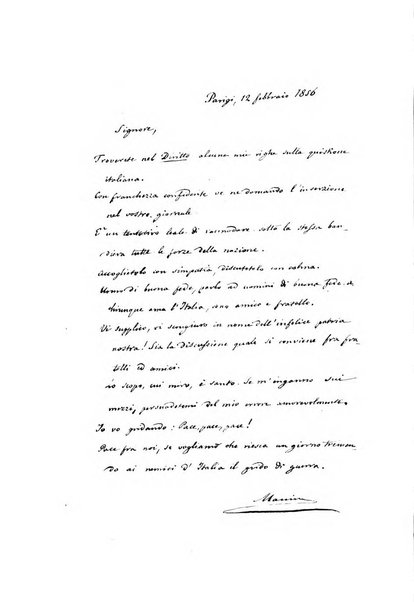 Parigi, 12 febbraio 1856
Signore,
Troverete nel Diritto alcune mie righe sulla quistione
italiana.
Con franchezza confidente ve ne domando l'inserzione
nel vostro giornale.
E' un tentativo leale di rannodare sotto la stessa ban-
diera tutte le forze della nazione.
Accoglietelo con simpatia, discutetelo con calma.
Uomo di buona fede, parlo ad uomini di buona fede. a
chiunque ama l'Italia, sono amico e fratello.
Vi supplico, vi scongiuro in nome dell'infelice patria
nostra! Sia la discussione quale si conviene fra fra-
telli ed amici.
Lo scopo, cui miro, è santo. Se m'inganno sui
mezzi, persuadetemi del mio errore amorevolmente.
Io vo gridando: Pace, pace, pace!
Pace fra noi, se vogliamo che riesca un giorno tremen-
do ai nemici d'Italia il grido di guerra.
Manin